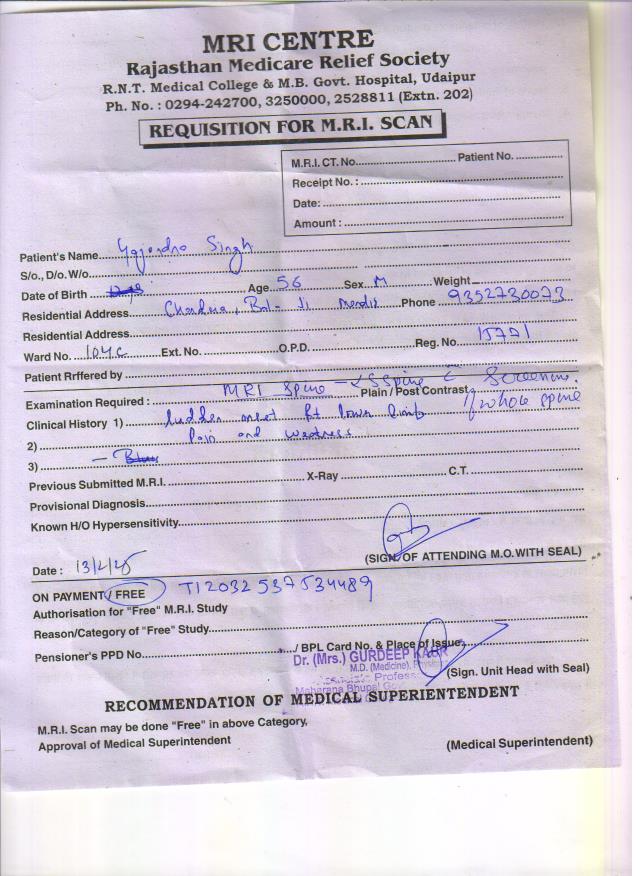 MRI CENTRE
Rajasthan Medicare Relief Society
R.N.T. Medical College & M.B. Govt. Hospital, Udaipur
Ph. No. : 0294-242700, 3250000, 2528811 (Extn. 202)
REQUISITION FOR M.R.I. SCAN
M.R.I. CT. No. Patient No.
Receipt No. :
Date:
Amount :
Patient's Name Singh
S/o., D/o. W/o.
Date of Birth Age 56 Sex M Weight
Residential Address Phone 9352730073
Residential Address
Ward No. 104C Ext. No. O.P.D. Reg. No. 15771
Patient Rrffered by
Examination Required : MRI Spine - LS Spine c Screening Plain / Post Contrast of whole spine
Clinical History 1) Sudden onset Rt lower limb
2) Pain and weakness
3)
Previous Submitted M.R.I. X-Ray C.T.
Provisional Diagnosis
Known H/O Hypersensitivity
(SIGN. OF ATTENDING M.O. WITH SEAL)
Date : 13/2/25
ON PAYMENT / FREE T12032537534489
Authorisation for "Free" M.R.I. Study
Reason/Category of "Free" Study
Pensioner's PPD No. / BPL Card No. & Place of Issue
Dr. (Mrs.) GURDEEP KAUR
M.D. (Medicine), Physician
Profess
(Sign. Unit Head with Seal)
Maharana Bhupal
RECOMMENDATION OF MEDICAL SUPERIENTENDENT
M.R.I. Scan may be done "Free" in above Category,
Approval of Medical Superintendent (Medical Superintendent)